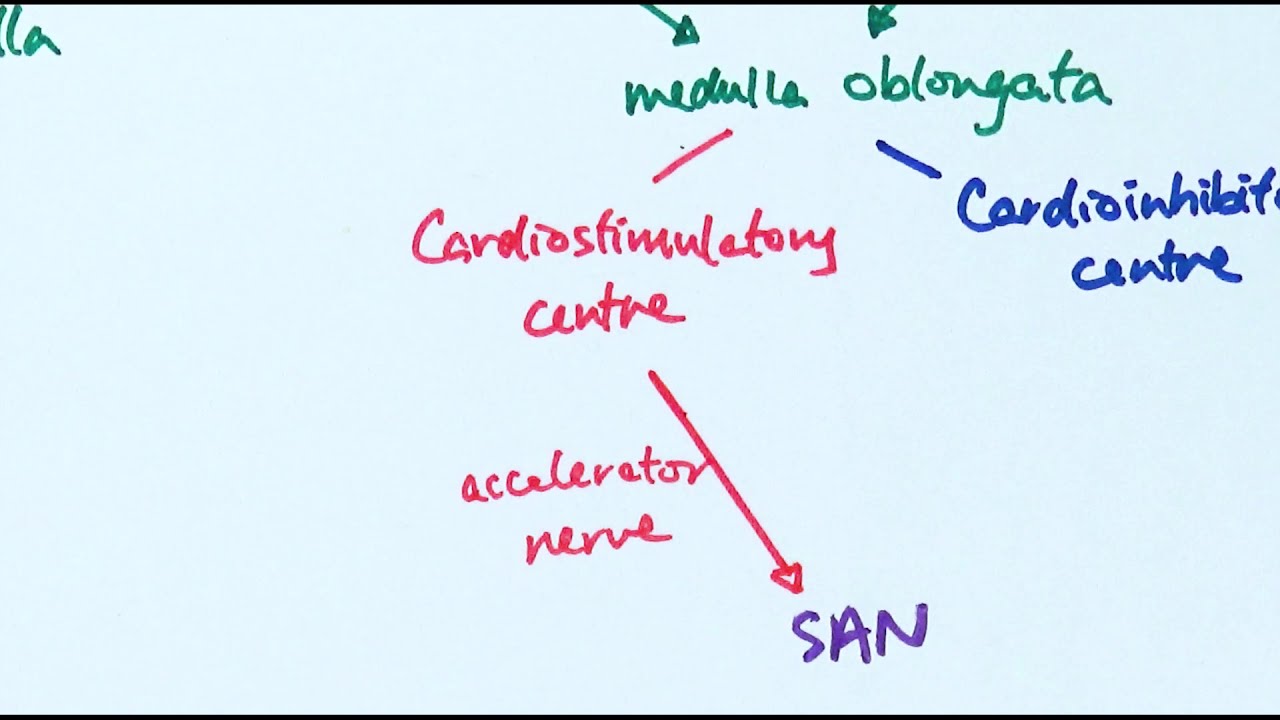 lla
medulla oblongata
Cardiostimulatory
centre
Cardioinhibit
centre
accelerator
nerve
SAN